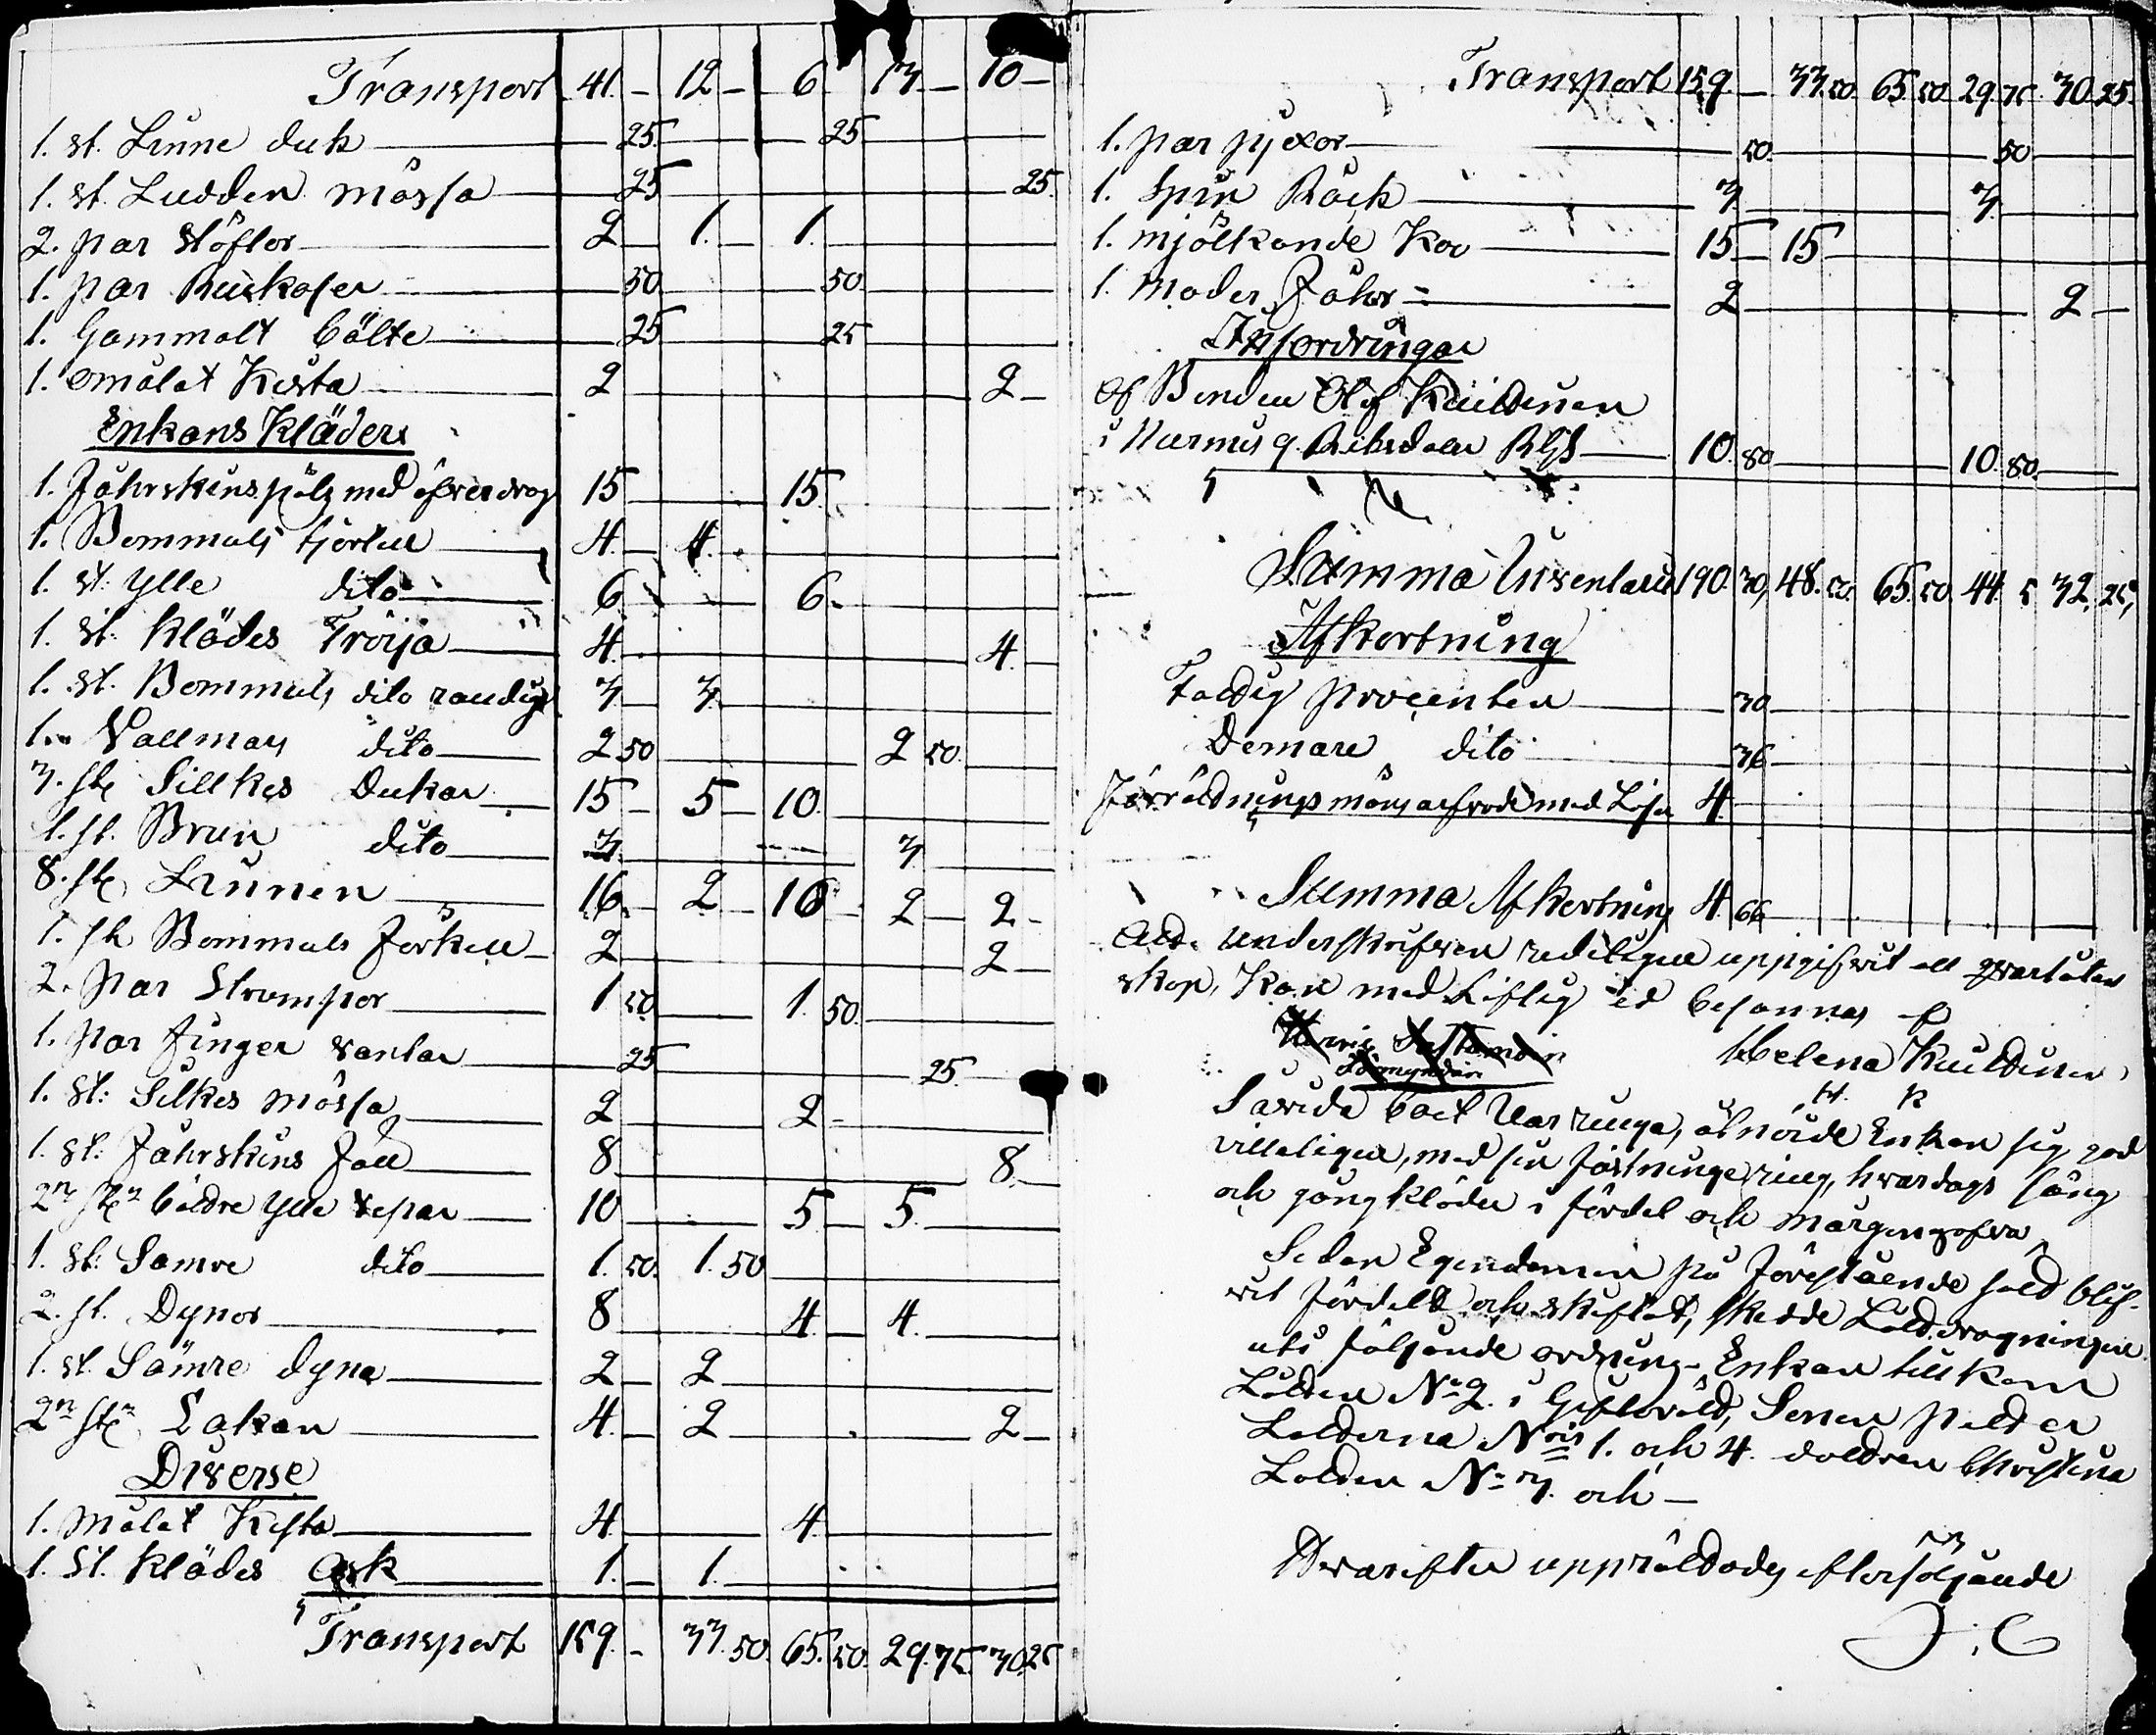 Transport 41. – 12 – 6 13 – 10 –
1. st. Linne duk 25. 25
1. st. Ludden mössa 25 25.
2. par stöflor 2 1. 1.
1. par 50 50
1. Gammalt bälte 25 25
1. omålat Kista 2 2 –
Enkans Kläder
1. Fåhrskins pälz med öfverdrag 15 15.
1. Bommuls kjortell 4. 4.
1. st. ylle dito 6. 6.
1. st. Klädes Tröija 4. 4.
1. st. Bommuls dito randigt 3 3.
1. Vallmans dito 2 50 2 50.
3. stk Sillkes Dukar 15 – 5 – 10.
1. st. Brun dito 3. 3.
8. stk Linnen 16. – 2 – 10 – 2 – 2 –
1. st. Bommuls Förkell 2 2 –
2. par Strumpor 1 50. 1. 50.
1. par finger vantar 25 25.
1. st: Silkes mössa 2 2 –
1. st: Fåhrskins Fäll 8 8.
2n stkn bäldre ylle tepar 10 5 – 5.
1. st: Sämre dito 1. 50. 1. 50
2. st. Dynor 8 4. – 4.
1. st. Sämre dyna 2 – 2
2n stkn Lakan 4. – 2 2 –
Diverse
1. målat Kista 4. 4.
1. st. Klädes ask 1. – 1.
Transport 159. – 33. 50. 65. 50. 29. 75. 30. 25
Transport 159. – 33. 50. 65 50. 29 75 30. 25.
1. par pjexor 50. 50
1. Spin Råck 3. 3.
1. mjölkande Ko 15 – 15
1. moder Fåhr 2 2 –
Infordringar
Af Bonden Olof Kuildinen
i Nurmis 9. Riksdaler RGS 10. 80 10. 80.
Summa Inventarii 190. 30, 48. 50. 65. 50. 44. 5 32. 25,
Afkortning
Fattig procenten 30
Domare dito 36
Förrättnings mäns arfvode med Lösen 4.
Summa Afkortning 4. 66
Att underskrifven redeligen uppgifvit all qvarlåten
skap, Kan med Liflig ed besannas
Helena Kuildinen
H. K
Savida boet Uar ringa, åtnöide Enkan sig god
villeligen, med sin fästningering, hvardags säng
och gång kläder i fördel och morgongofva
Sedan Egendomen på förestående sätt blif-
vit fördelt och skiftat, skedde Lottdragningen
uti följande ordning – Enkan tillkom
Lotten No 2. i Giftorätt, Sonen
Lotterna Nris 1. och 4. dottren Christina
Lotten No 3. och –
Hvarefter upprättades efterföljande